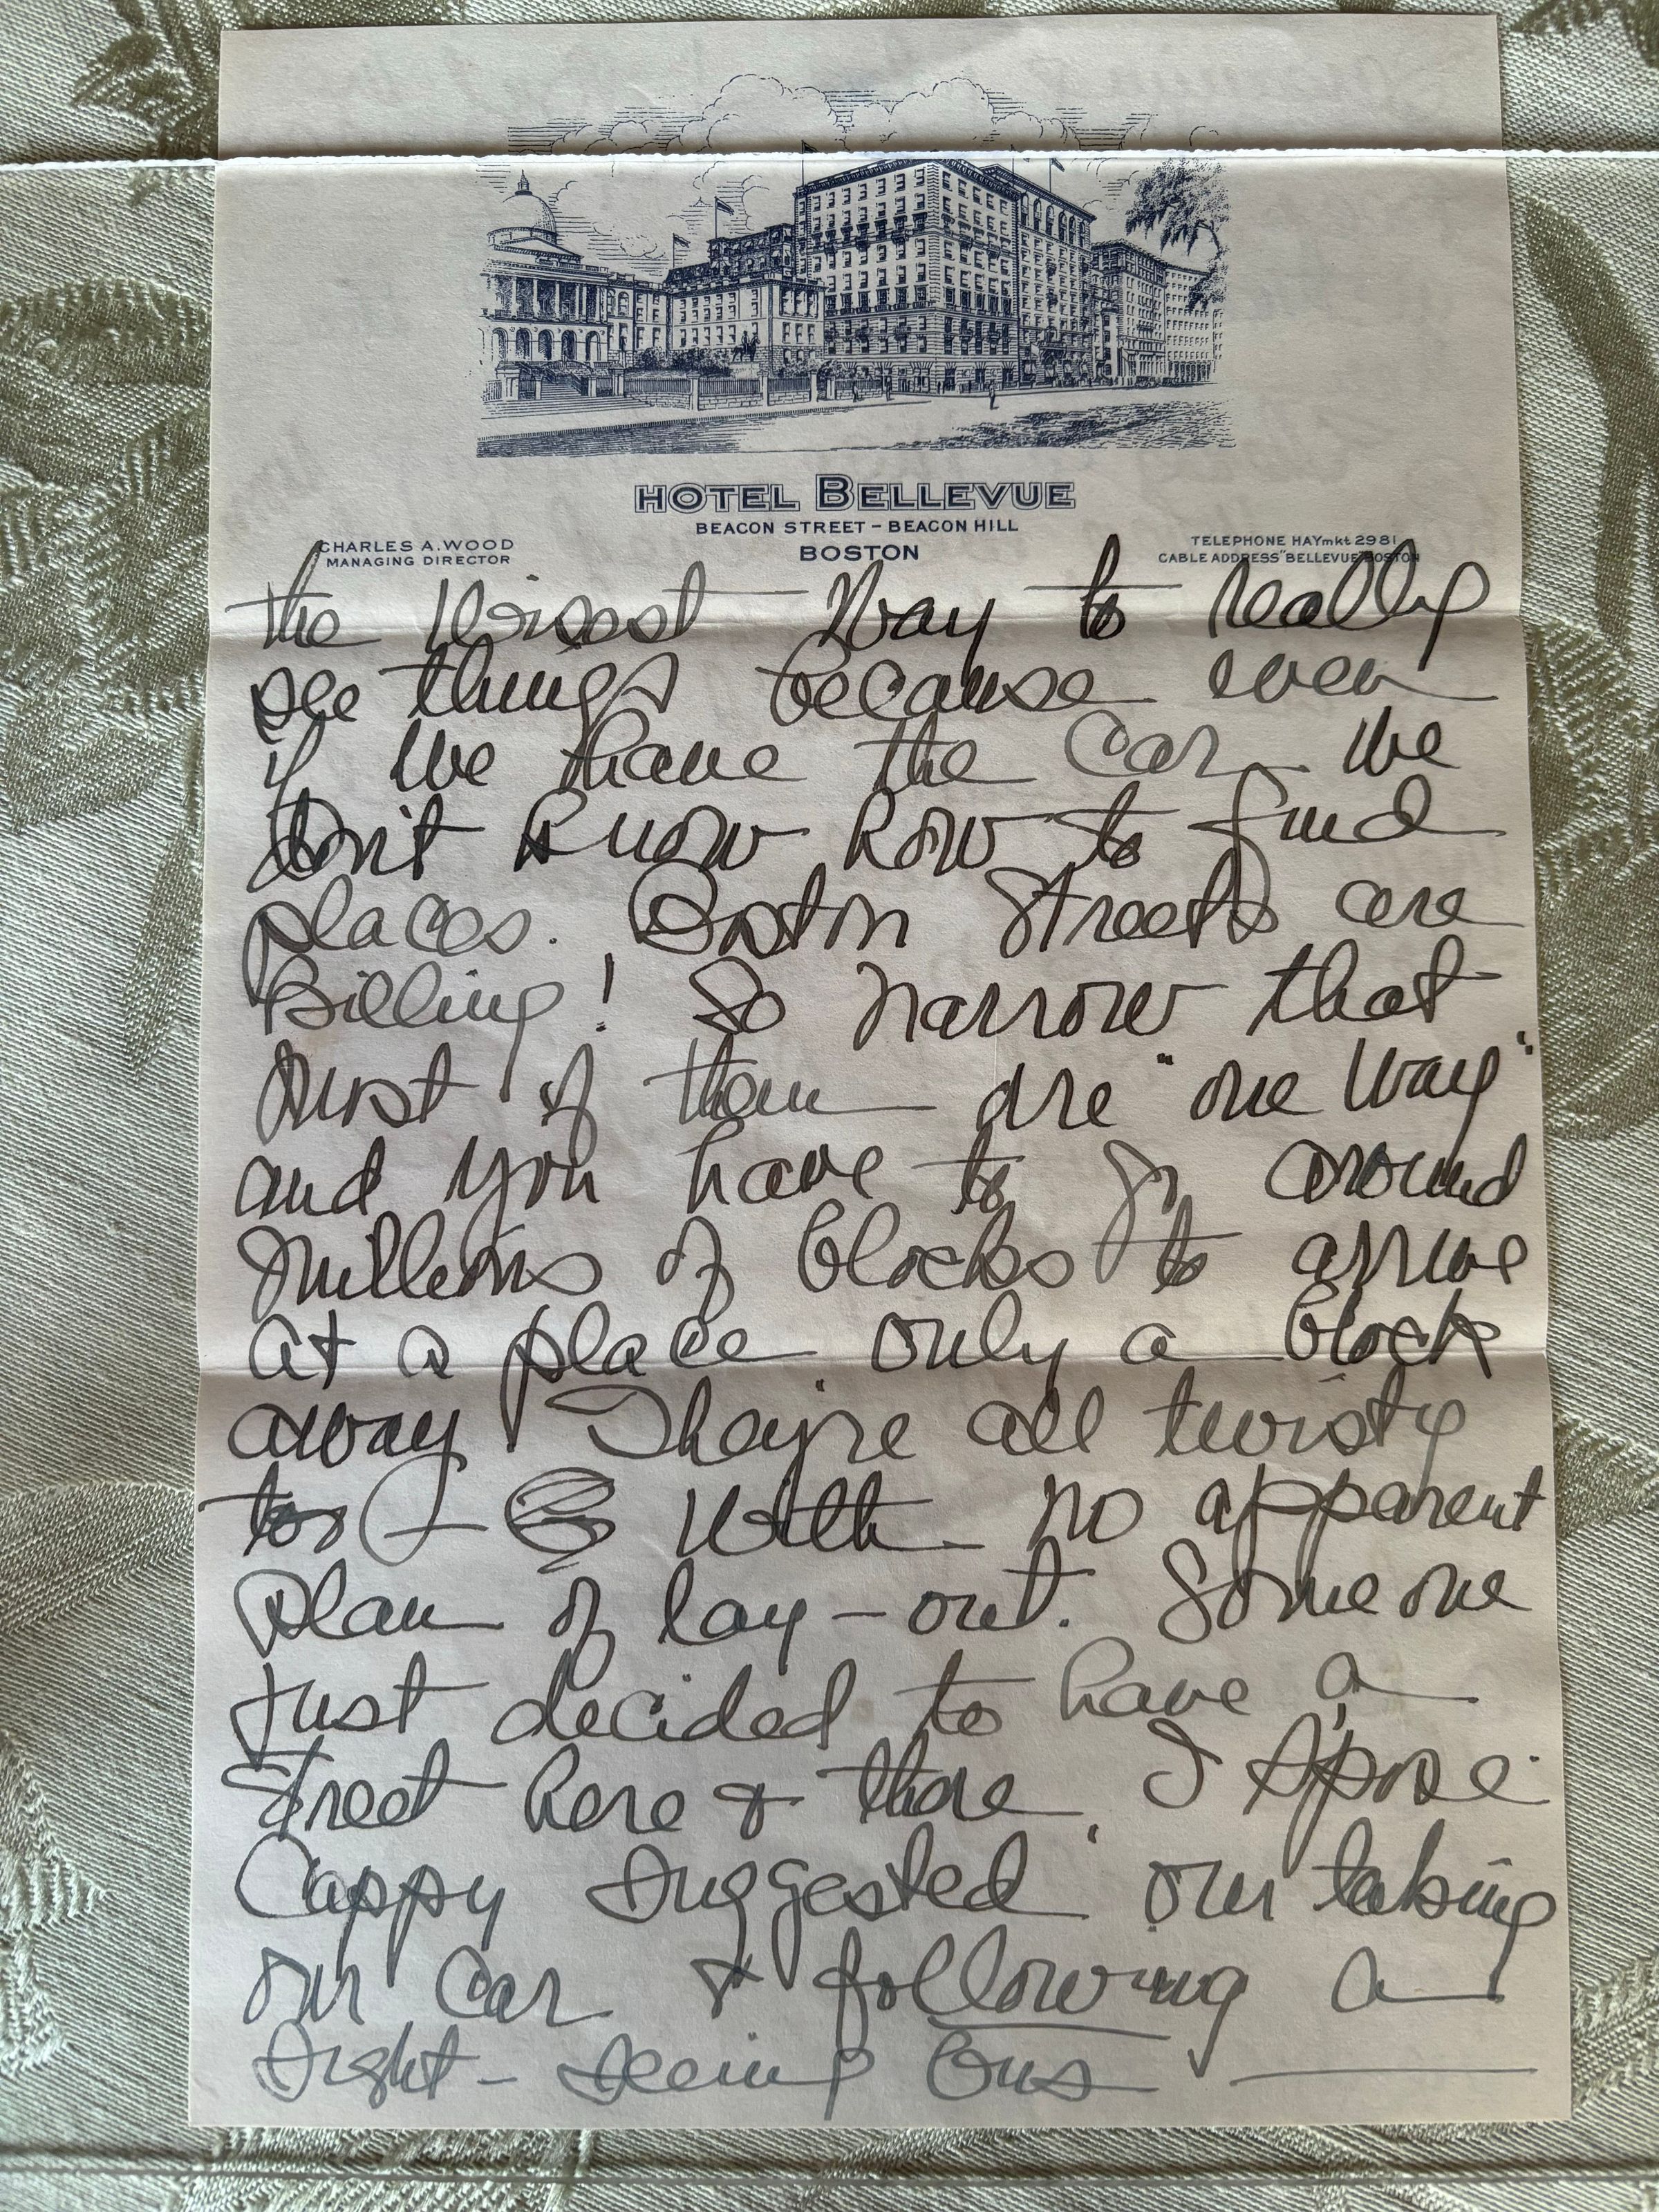 HOTEL BELLEVUE
BEACON STREET - BEACON HILL
BOSTON
CHARLES A. WOOD
MANAGING DIRECTOR
TELEPHONE HAYmkt 2981
CABLE ADDRESS "BELLEVUE" BOSTON
the wisest way to really
see things because even
if we have the car we
don't know how to find
places. Boston Streets are
killing! So narrow that
most of them are "one way"
and you have to go around
millions of blocks to arrive
at a place only a block
away. They're all twisty
too - with no apparent
plan of lay-out. Someone
just decided to have a
street here & there, I s'pose.
Cappy suggested our taking
our car & following a
sight-seeing bus